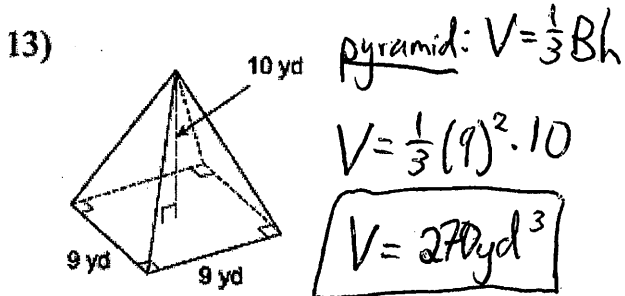 13)
10 yd
9 yd
9 yd
pyramid: V = 1/3 Bh
V = 1/3 (9)² · 10
V = 270yd³